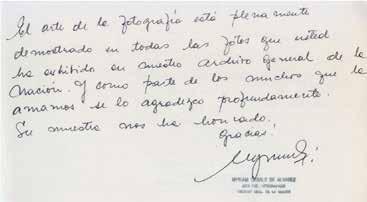 El arte de la fotografía está plenamente
demostrado en todas las fotos que usted
ha exhibido en nuestro archivo general de la
Nación. Y como parte de los muchos que la
amamos se lo agradezco profundamente.
Su muestra nos ha honrado.
Gracias!